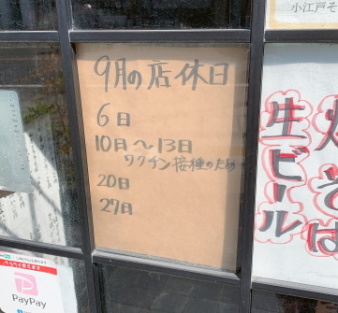 9月の店休日
6日
10日〜13日
ワクチン接種のため
20日
27日
小江戸そ
焼そば
生ビール
PayPay